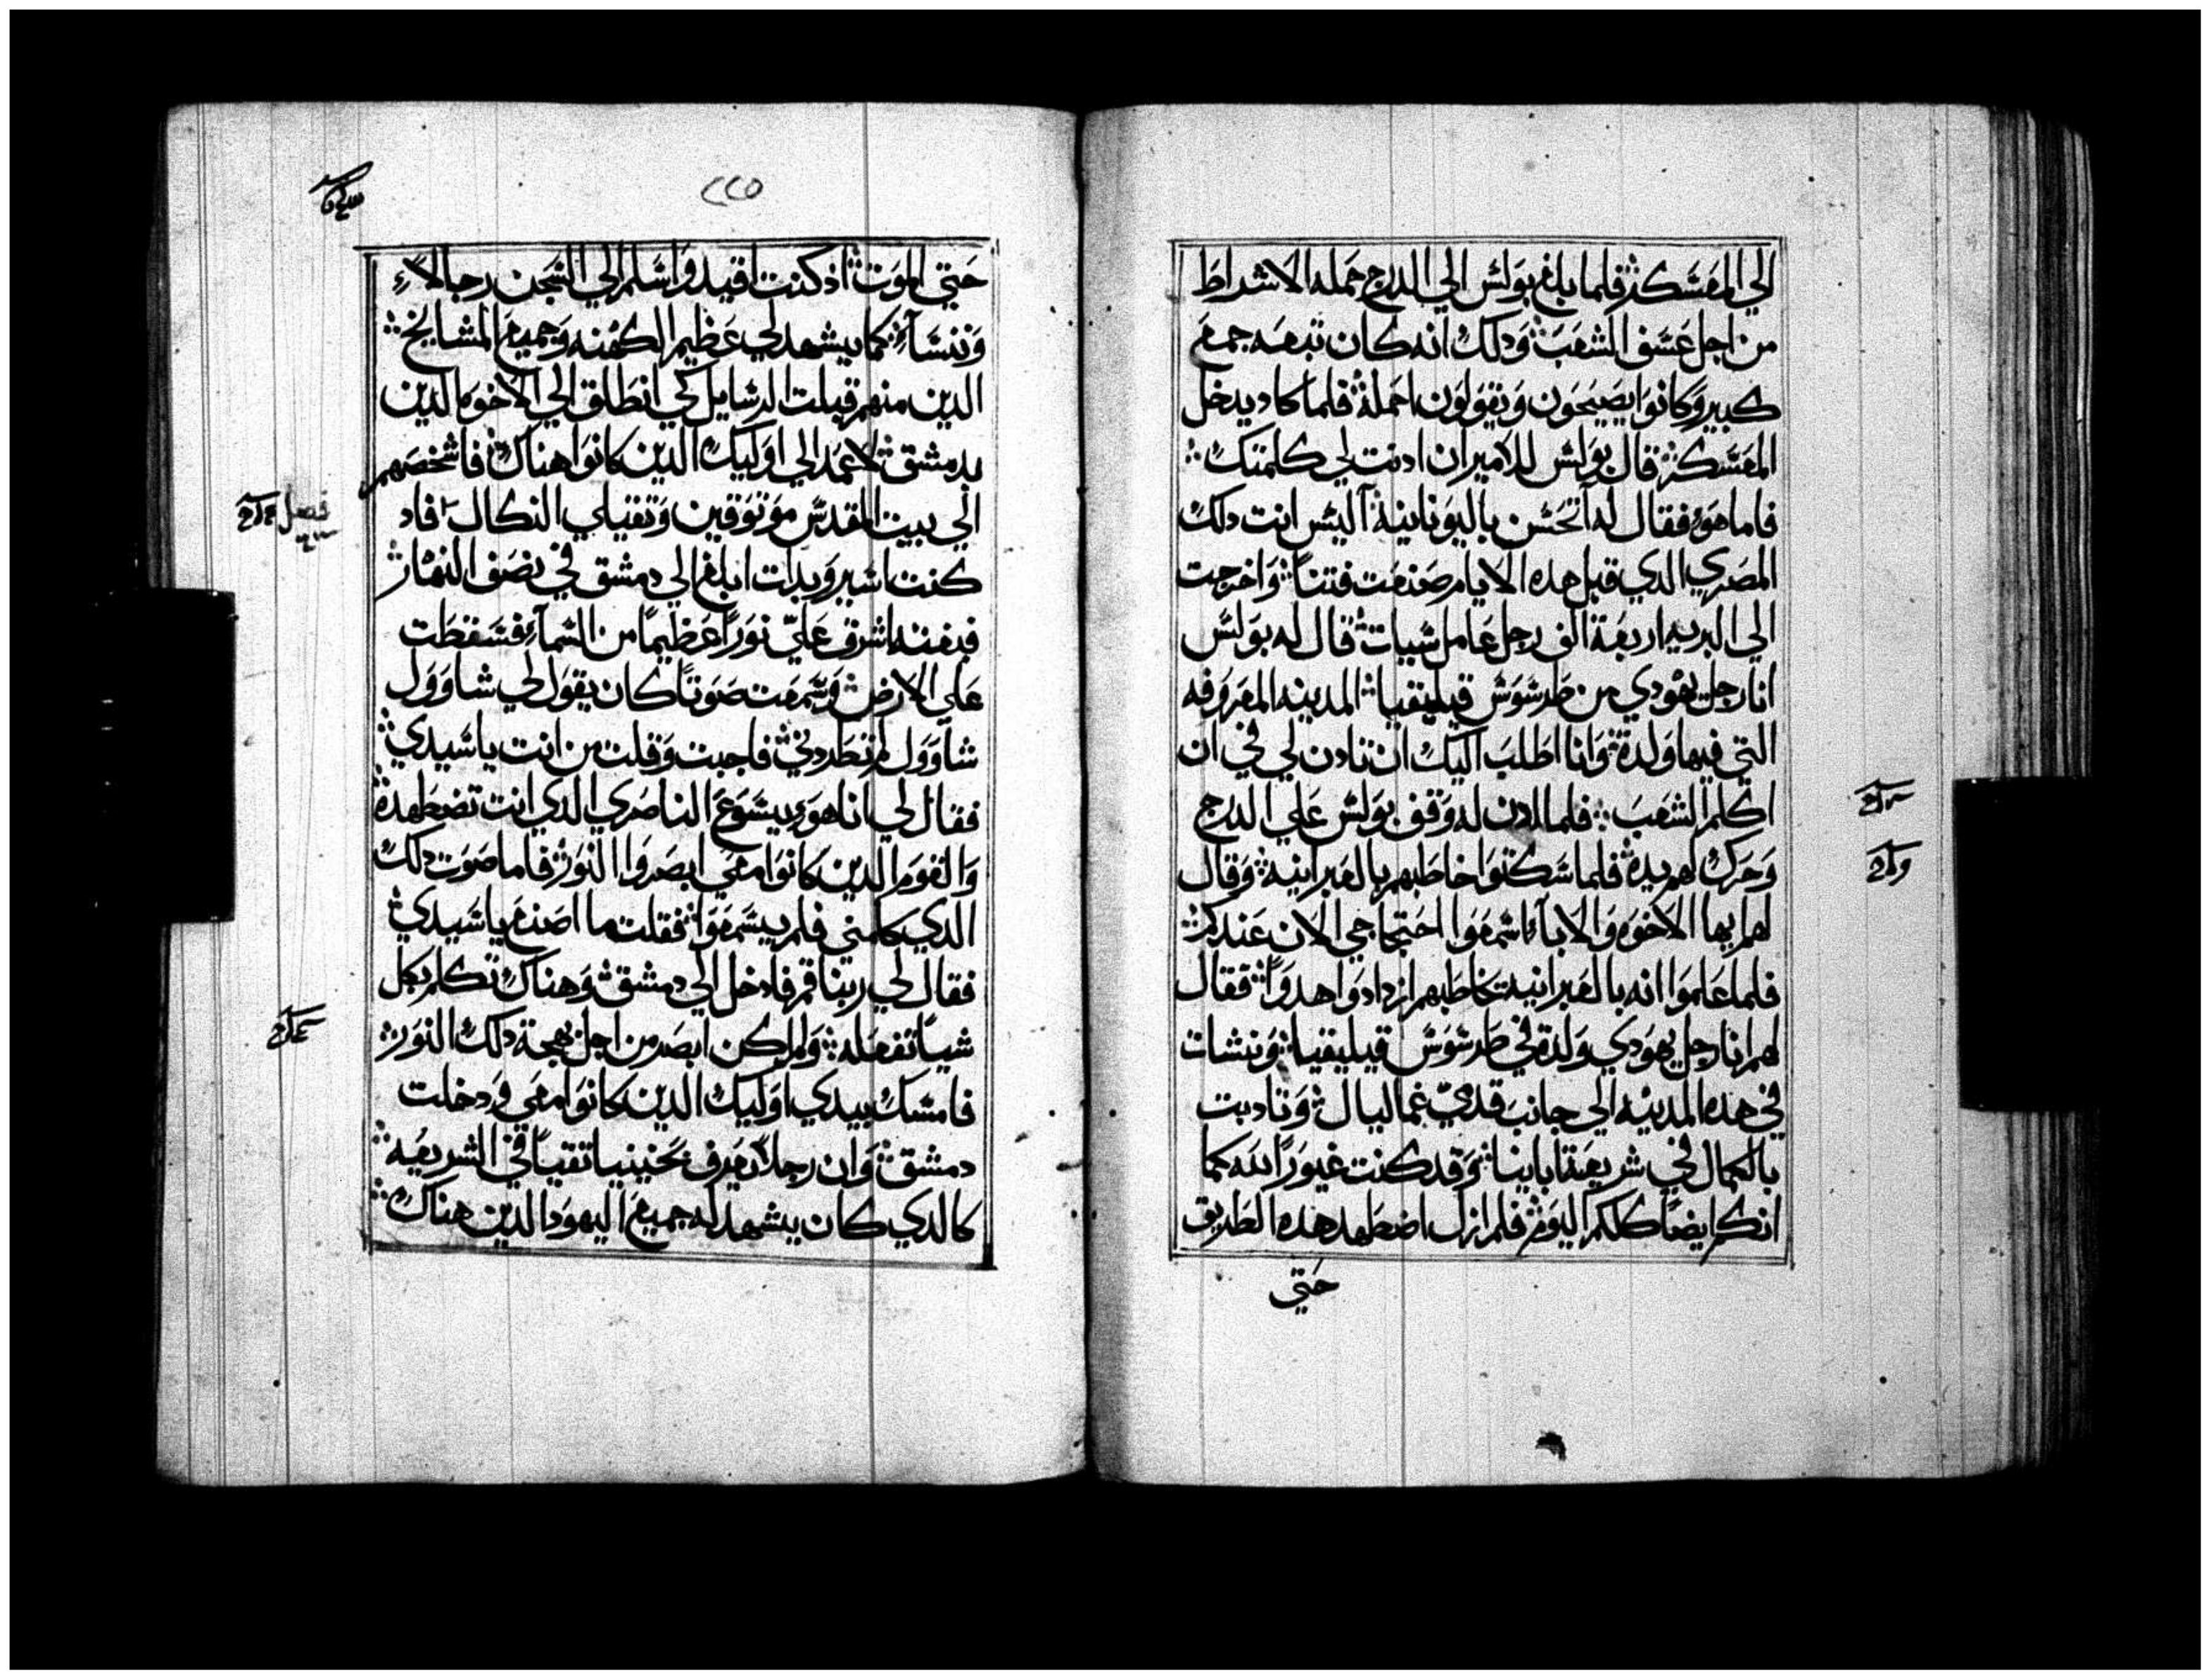 الي المعسكر فلما بلغ بولس الي الدرج حمله الاشراط
من اجل عسف الشعب ودلك انه كان تبعه جمع
كبير وكانوا يصيحون ويقولون احمله فلما كاد يدخل
المعسكر قال بولس للامير ان ادنت لي كلمتك
فاما هو فقال له اتحسن باليونانية اليس انت دلك
المصري الدي قبل هده الايام صنعت فتنا واخرجت
الي البريه اربعة الف رجل عامل سيات قال له بولس
انا رجل يهودي من طرسوس قيليقيا المدينه المعروفه
التي فيها ولدة وانا اطلب اليك ان تادن لي في ان
اكلم الشعب فلما ادن له وقف بولس علي الدرج
وحرك لهم يده فلما سكتوا خاطبهم بالعبرانيه وقال
لهم ايها الاخوه والاباء اسمعوا احتجاجي الان عندكم
فلما علموا انه بالعبرانيه تخاطبهم ازدادوا هدوا فقال
لهم انا رجل يهودي ولدة في طرسوس قيليقيا ونشات
في هده المدينه الي جانب قدمي غماليال وتادبت
بالكمال في شريعة ابائنا وقد كنت غيورا لله كما
انكم ايضا كلكم اليوم فلم ازل اضطهد هده الطريق
حتي
٢٢٥
حتي الموت اد كنت اقيد واسلم الي السجن رجالاء
ونساء كما يشهد لي عظيم الكهنه وجميع المشايخ
الدين منهم قبلت الرسايل كي انطلق الي الاخوه الدين
بدمشق لاعمد الي اوليك الدين كانوا هناك فاشخصهم
الي بيت المقدس موتوقين وتقبلي النكال فاد
فصل
كنت اسير وبدات ابلغ الي دمشق في نصف النهار
فبغته اشرق علي نورا عظيما من السماء فسقطت
علي الارض وسمعت صوتا كان يقول لي شاوول
شاوول لم تطردني فاجبت وقلت من انت ياسيدي
فقال لي انا هو يسوع الناصري الدي انت تضطهدة
والقوم الدين كانوا معي ابصروا النور فاما صوت دلك
الدي كلمني فلم يسمعوا فقلت ما اصنع ياسيدي
فقال لي ربنا قم فادخل الي دمشق وهناك تكلم بكل
شيا تفعله ولم اكن ابصر من اجل بهجة دلك النور
فامسك بيدي اوليك الدين كانوا معي ودخلت
دمشق وان رجلا يعرف بحنينيا تقيا في الشريعه
كالدي كان يشهد له جميع اليهود الدين هناك